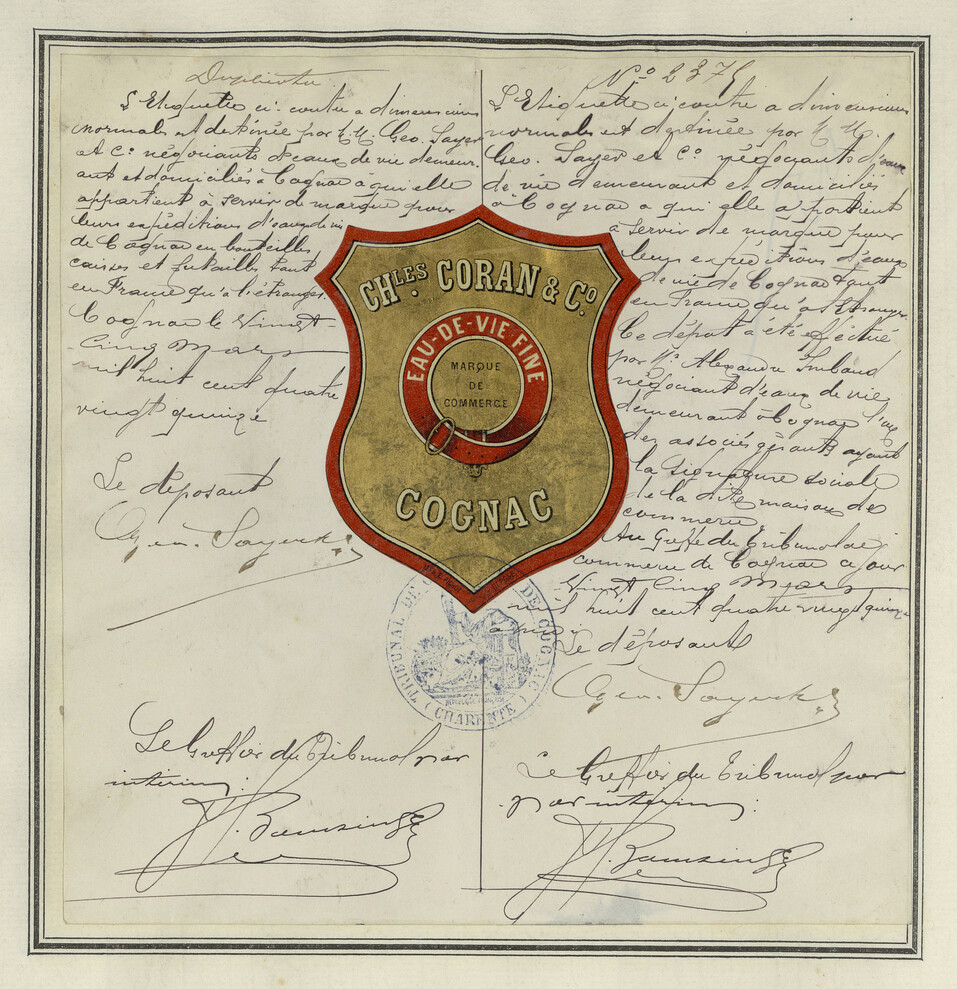 Duplicata
L'Etiquette ci-contre a dimensions
normales et destinée par M.M. Geo. Sayer
et Cº négociants d'eaux de vie demeur-
ant et domiciliés à Cognac à qui elle
appartient à servir de marque pour
leurs expéditions d'eaux de vie
de Cognac en bouteilles
caisses et futailles tant
en France qu'à l'étranger.
Cognac le Vingt-
Cinq Mars
mil huit cent quatre
vingt quinze
Le déposant
Geo. Sayer & Cº
Le Greffier du Tribunal par
intérim:
Nº 2375
L'Etiquette ci contre a dimensions
normales et destinée par M M.
Geo. Sayer et Cº négociants d'eaux
de vie demeurant et domiciliés
à Cognac a qui elle appartient
à servir de marque pour
leurs expéditions d'eaux
de vie de Cognac tant
en France qu'à l'Etranger
Ce dépôt a été effectué
par Mr. Alexandre Imbaud
négociant d'eaux de vie
demeurant à Cognac l'un
des associés gérants ayant
la signature sociale
de la dite maison de
commerce
Au Greffe du Tribunal de
commerce de Cognac ce jour
Vingt Cinq Mars
mil huit cent quatre vingt quinze
Le déposant
Geo. Sayer & Cº
Le Greffier du Tribunal par
par intérim:
CHLES CORAN & Cº
EAU-DE-VIE FINE
MARQUE
DE
COMMERCE
COGNAC
TRIBUNAL DE COMMERCE DE COGNAC
(CHARENTE)